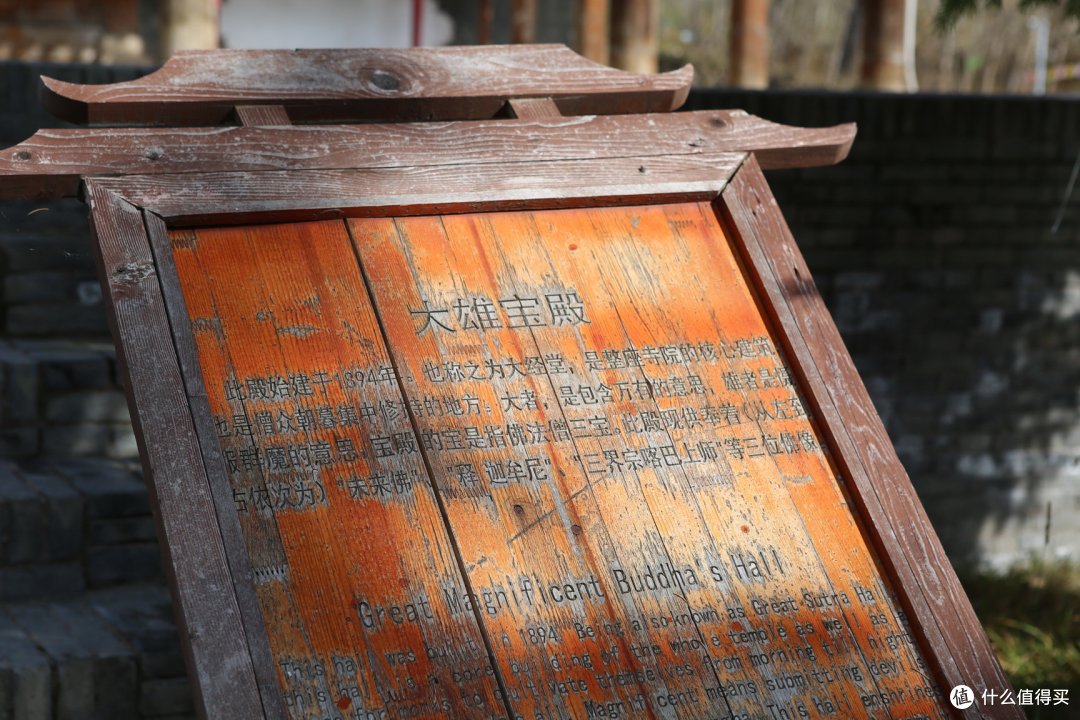 大雄宝殿
此殿始建于1894年。也称之为大经堂，是整座寺院的核心建筑
也是僧众朝暮集中修持的地方。大者，是包含万有的意思，雄者是
服群魔的意思，宝殿的宝是指佛法僧三宝。此殿现供奉着（从左到
右依次为）“未来佛”“释迦牟尼”“三界宗喀巴上师”等三位佛像
Great Magnificent Buddha's Hall
This hall was built in 1894. Being also known as Great Sutra Ha
building of the whole temple as well as
cultivate themselves from morning till night
Magnificent" means submitting devils
This Hall enshrines
值 什么值得买